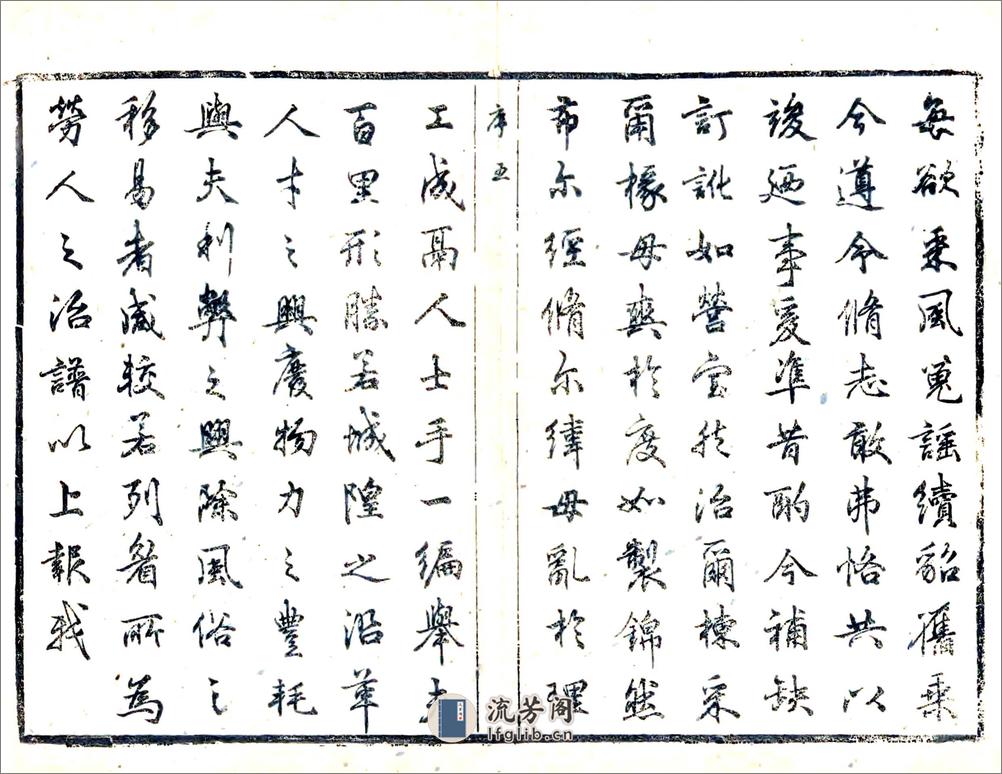 每欲乘風覓謡續貂舊乘
今遵令脩志敢弗恪共以
竣廼事爰準昔酌今補缺
訂訛如營室然治爾棟采
爾椽毋爽於度如製錦然
布尔經脩尔緯毋亂於理
序 五
工成鬲人士手一編舉夫
百里形勝若城隍之沿革
人才之興廢物力之豐耗
與夫利弊之興除風俗之
移易者咸較若列眉所為
勞人之治譜以上報我
流芳阁
lfglib.cn